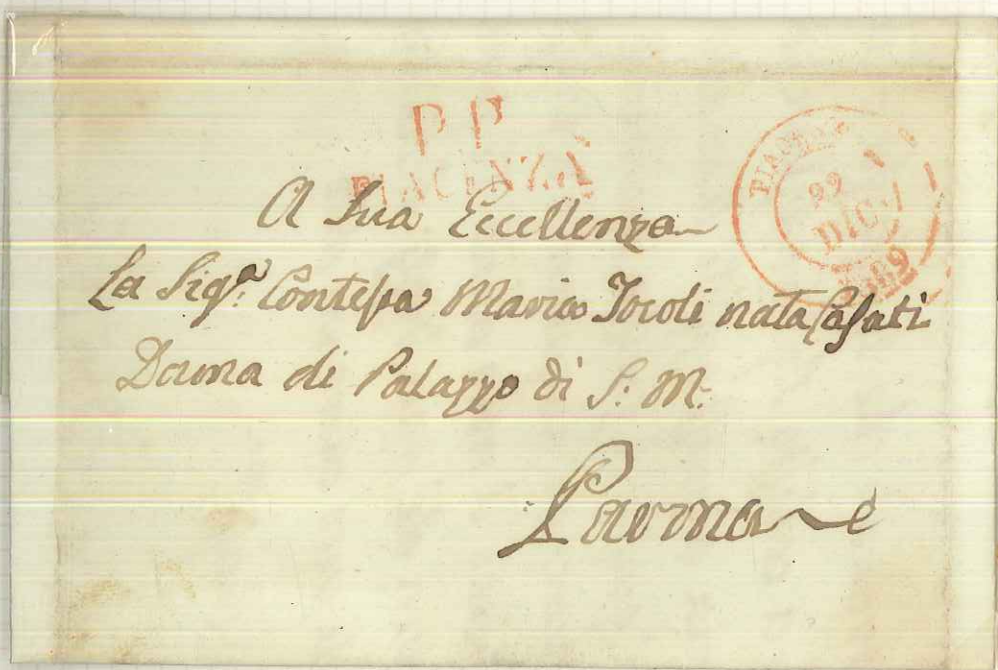 P.P.
PIACENZA
PIACENZA
DIC.
A Sua Eccellenza
La Sigᵃ: Contessa Maria Tocoli nata Casati
Dama di Palazzo di S: M:
Parma